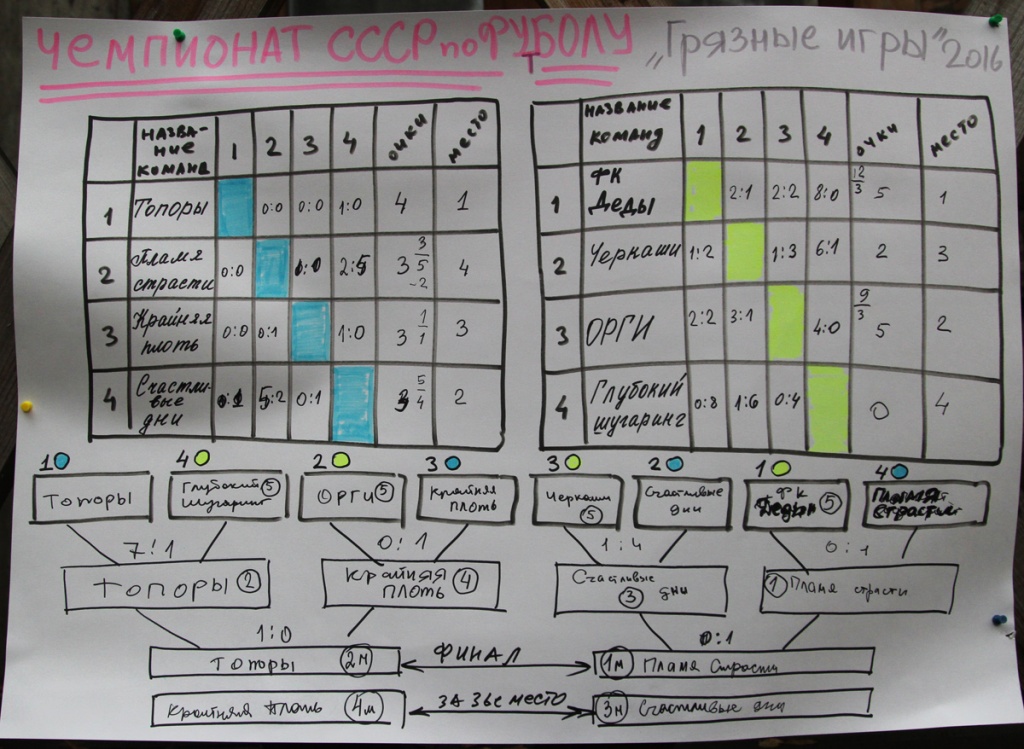 ЧЕМПИОНАТ СССР по ФУБОЛУ „Грязные игры" 2016
Т
НАЗВА-
НИЕ
КОМАНД 1 2 3 4 ОЧКИ МЕСТО
1 Топоры 0:0 0:0 1:0 4 1
2 Пламя
страсти 0:0 2:5 3 3/5 -2 4
3 Крайняя
плоть 0:0 0:1 1:0 3 1/1 3
4 Счастли-
вые
дни 5:2 0:1 3 5/4 2
НАЗВАНИЕ
КОМАНД 1 2 3 4 ОЧКИ МЕСТО
1 ФК
Деды 2:1 2:2 8:0 12/3 5 1
2 Чернаши 1:2 1:3 6:1 2 3
3 ОРГИ 2:2 3:1 4:0 9/3 5 2
4 Глубокий
шугаринг 0:8 1:6 0:4 0 4
1 4 2 3 3 2 1 4
Топоры
Глубокий 5
шугаринг
ОРГИ 5
Крайняя
плоть
Чернаши
5
Счастливые
дни
ФК
Деды 5
Пламя
страсти
7:1 0:1 1:4 0:1
Топоры 2
Крайняя 4
плоть
Счастливые
3 дни
1 Пламя страсти
1:0 0:1
Топоры 2м ФИНАЛ 1м Пламя Страсти
Крайняя плоть 4м ЗА 3ье МЕСТО 3м Счастливые дни